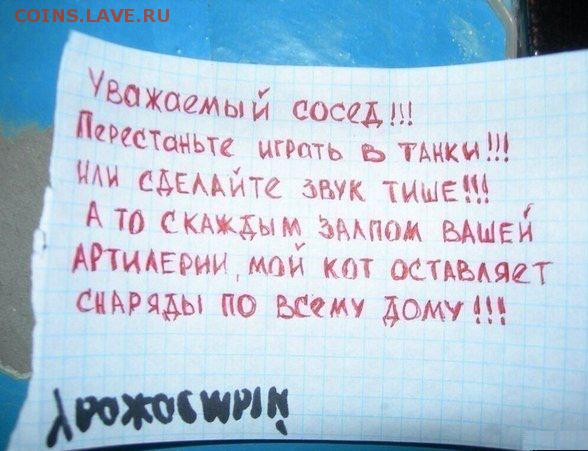 COINS.LAVE.RU
Уважаемый сосед!!!
Перестаньте играть в танки!!!
Или сделайте звук тише!!!
А то с каждым залпом вашей
артилерии, мой кот оставляет
снаряды по всему дому!!!